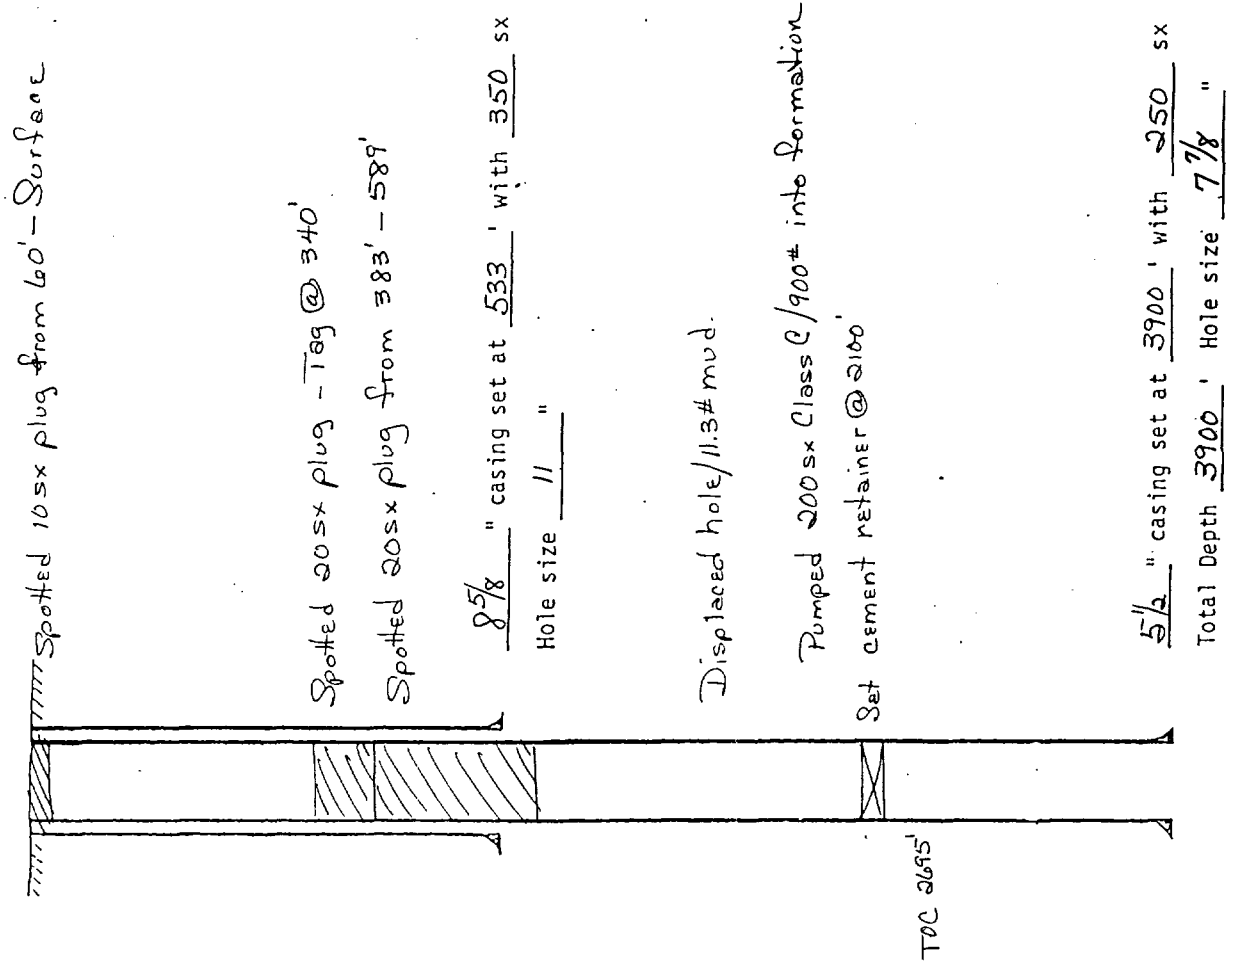 Spotted 10sx plug from 60'-Surface
Spotted 20sx plug - Tag @ 340'
Spotted 20sx plug from 383' - 589'
8 5/8 " casing set at 533 ' with 350 sx
Hole size 11 "
Displaced hole/11.3# mud.
Pumped 200sx Class C/900# into formation
Set cement retainer @ 2100'
TOC 2695'
5 1/2 " casing set at 3900 ' with 250 sx
Total Depth 3900 ' Hole size 7 7/8 "